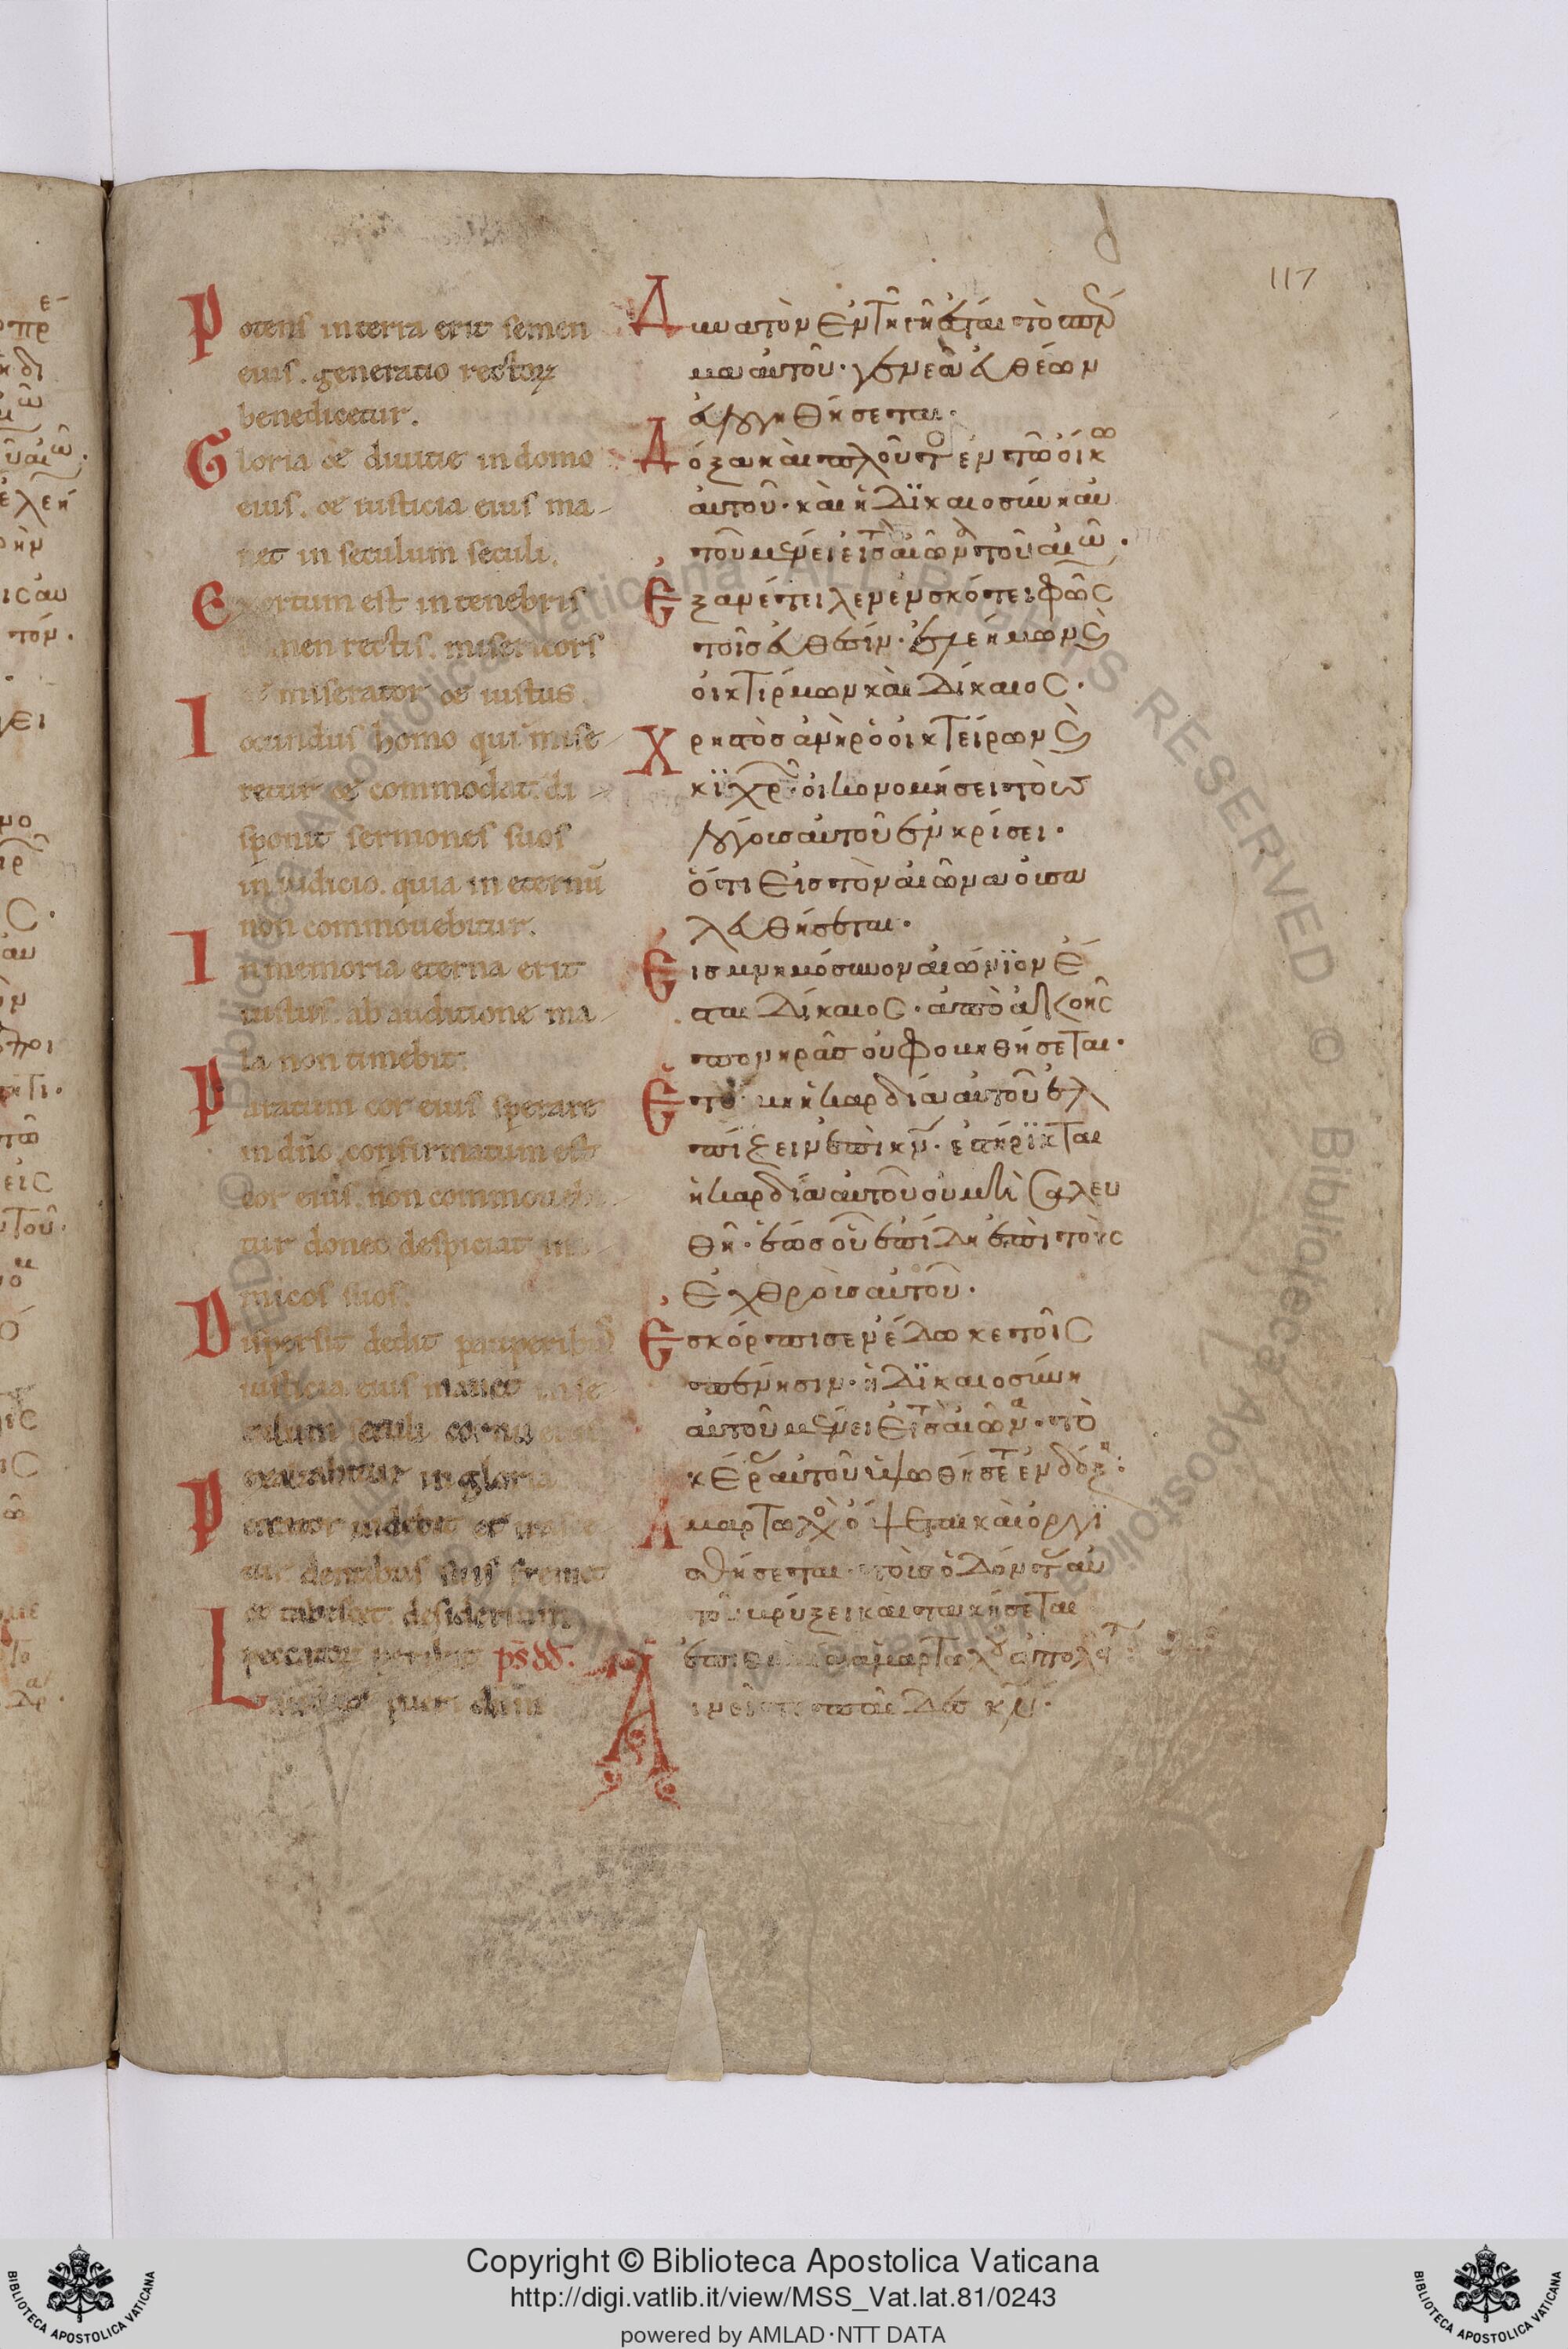 117
Potens in terra erit semen
eius. generatio rectoꝝ
benedicetur.
Gloria & diuitie in domo
eius. & iusticia eius ma-
net in seculum seculi.
Exortum est in tenebris
lumen rectis. misericors
& miserator & iustus.
Iocundus homo qui mise-
retur & commodat. di-
sponit sermones suos
in iudicio. quia in eternū
non commouebitur.
In memoria eterna erit
iustus. ab auditione ma-
la non timebit.
Paratum cor eius sperare
in dn̄o. confirmatum est
cor eius. non commoueb
tur donec despiciat in
micos suos.
Dispersit dedit pauperibus
iusticia eius manet in se
culum seculi cornu
exaltabitur in gloria
Peccator uidebit et irasce
tur dentibus suis fremet
& tabescet. desiderium
peccatoꝝ peribit ps̄ dd.
Laudate pueri dn̄m
Δυνατὸν ἐν τῆ γῆ ἔσται τὸ σπέρ
μα αὐτοῦ. γενεὰ εὐθέων
εὐλογηθήσεται.
Δόξα καὶ πλοῦτος ἐν τῶ οἴκω
αὐτοῦ. καὶ ἡ δικαιοσύνη αυ
τοῦ μένει εἰς τὸν αἰῶνα τοῦ αἰῶ.
Ἐξανέτειλεν ἐν σκότει φῶς
τοῖς εὐθέσιν. ἐλεήμων καὶ
οἰκτίρμων καὶ δίκαιος.
Χρηστὸς ἀνὴρ ὁ οἰκτείρων καὶ
κϊχρῶν. οἰκονομήσει τοὺς
λόγους αὐτοῦ ἐν κρίσει.
ὅτι εἰς τὸν αἰῶνα οὐ σα
λευθήσεται.
Εἰς μνημόσυνον αἰώνϊον ἔ
σται δίκαιος. ἀπὸ ἀκοῆς
πονηρᾶς οὐ φοβηθήσεται.
Ἑτοίμη ἡ καρδία αὐτοῦ ἐλ
πίζειν ἐπὶ κν̄. ἐστήρϊκται
ἡ καρδία αὐτοῦ οὐ μὴ σαλευ
θῆ. ἕως οὗ ἐπίδη ἐπὶ τοὺς
ἐχθροὺς αὐτοῦ.
Ἐσκόρπισεν ἔδωκε τοῖς
πένησιν. ἡ δϊκαιοσύνη
αὐτοῦ μένει εἰς τὸν αἰῶνα. τὸ
κέρας αὐτοῦ ὑψωθήσεται ἐν δόξη:
Ἁμαρτωλὸς ὄψεται καὶ ὀργϊ
σθήσεται. τοὺς ὀδόντας αυ
τοῦ βρύξει καὶ τακήσεται
ἐπιθυμία ἁμαρτωλοῦ ἀπολεῖται
Αἰνεῖτε παῖδες κν̄.
Copyright © Biblioteca Apostolica Vaticana
http://digi.vatlib.it/view/MSS_Vat.lat.81/0243
powered by AMLAD·NTT DATA